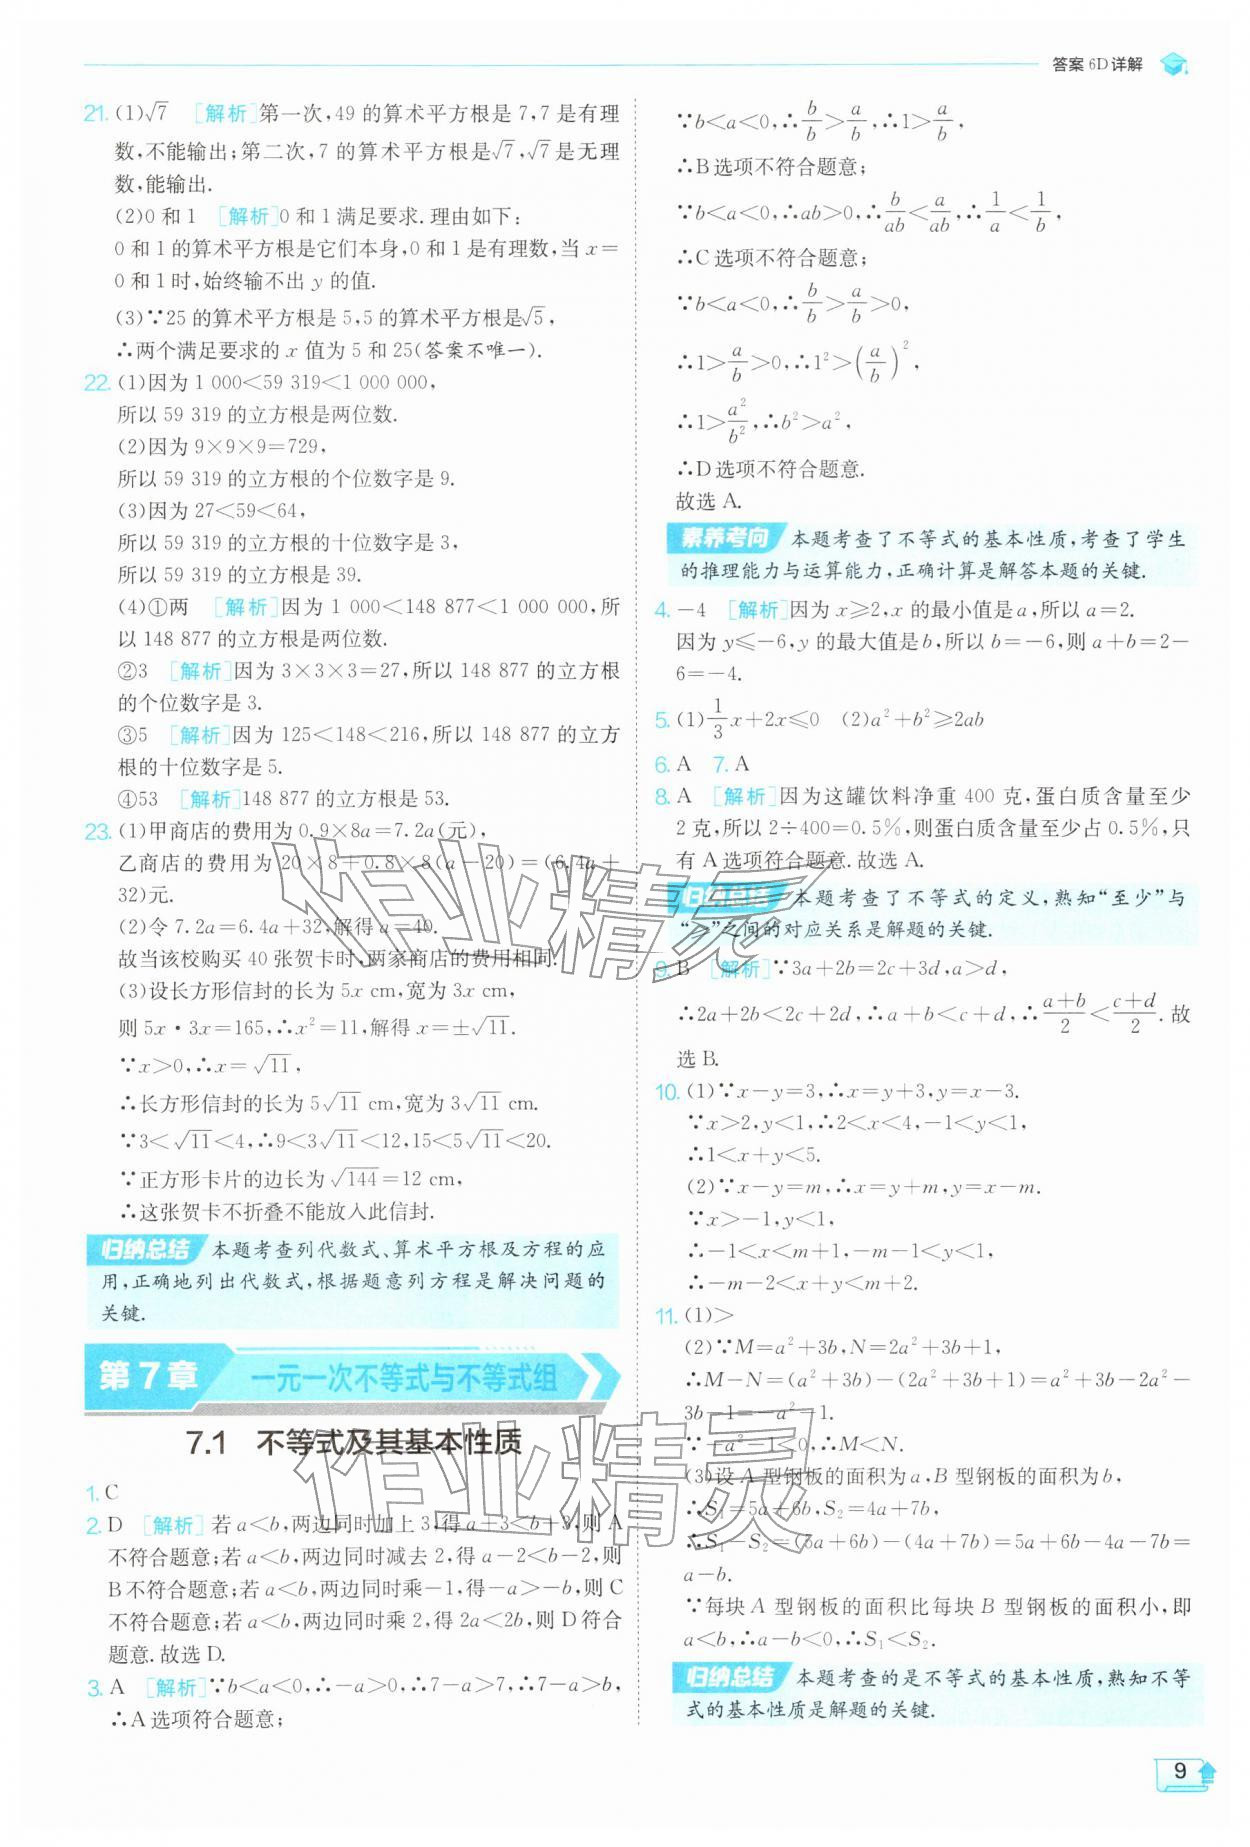 答案 6D详解
21. (1)√7 [解析]第一次,49 的算术平方根是 7,7 是有理
数,不能输出;第二次,7 的算术平方根是√7,√7是无理
数,能输出.
(2)0 和 1 [解析]0 和 1 满足要求.理由如下:
0 和 1 的算术平方根是它们本身,0 和 1 是有理数,当 x=
0 和 1 时,始终输不出 y 的值.
(3)∵25 的算术平方根是 5,5 的算术平方根是√5,
∴两个满足要求的 x 值为 5 和 25(答案不唯一).
22. (1)因为 1 000<59 319<1 000 000,
所以 59 319 的立方根是两位数.
(2)因为 9×9×9=729,
所以 59 319 的立方根的个位数字是 9.
(3)因为 27<59<64,
所以 59 319 的立方根的十位数字是 3,
所以 59 319 的立方根是 39.
(4)①两 [解析]因为 1 000<148 877<1 000 000,所
以 148 877 的立方根是两位数.
②3 [解析]因为 3×3×3=27,所以 148 877 的立方根
的个位数字是 3.
③5 [解析]因为 125<148<216,所以 148 877 的立方
根的十位数字是 5.
④53 [解析]148 877 的立方根是 53.
23. (1)甲商店的费用为 0.9×8a=7.2a(元),
乙商店的费用为 20×8+0.8×8(a-20)=(6.4a+
32)元.
(2)令 7.2a=6.4a+32,解得 a=40.
故当该校购买 40 张贺卡时,两家商店的费用相同.
(3)设长方形信封的长为 5x cm,宽为 3x cm,
则 5x·3x=165,∴x²=11,解得 x=±√11.
∵x>0,∴x=√11,
∴长方形信封的长为 5√11 cm,宽为 3√11 cm.
∵3<√11<4,∴9<3√11<12,15<5√11<20.
∵正方形卡片的边长为√144=12 cm,
∴这张贺卡不折叠不能放入此信封.
归纳总结 本题考查列代数式、算术平方根及方程的应
用,正确地列出代数式,根据题意列方程是解决问题的
关键.
第 7 章 一元一次不等式与不等式组
7.1 不等式及其基本性质
1. C
2. D [解析]若 a<b,两边同时加上 3,得 a+3<b+3,则 A
不符合题意;若 a<b,两边同时减去 2,得 a-2<b-2,则
B不符合题意;若 a<b,两边同时乘-1,得-a>-b,则 C
不符合题意;若 a<b,两边同时乘 2,得 2a<2b,则 D 符合
题意.故选 D.
3. A [解析]∵b<a<0,∴-a>0,∴7-a>7,∴7-a>b,
∴A 选项符合题意;
∵b<a<0,∴b/b>a/b,∴1>a/b,
∴B 选项不符合题意;
∵b<a<0,∴ab>0,∴b/ab<a/ab,∴1/a<1/b,
∴C 选项不符合题意;
∵b<a<0,∴b/b>a/b>0,
∴1>a/b>0,∴1²>(a/b)²,
∴1>a²/b²,∴b²>a²,
∴D 选项不符合题意.
故选 A.
素养考向 本题考查了不等式的基本性质,考查了学生
的推理能力与运算能力,正确计算是解答本题的关键.
4. -4 [解析]因为 x≥2,x 的最小值是 a,所以 a=2.
因为 y≤-6,y 的最大值是 b,所以 b=-6,则 a+b=2-
6=-4.
5. (1)1/3x+2x≤0 (2)a²+b²≥2ab
6. A 7. A
8. A [解析]因为这罐饮料净重 400 克,蛋白质含量至少
2 克,所以 2÷400=0.5%,则蛋白质含量至少占 0.5%,只
有 A 选项符合题意.故选 A.
归纳总结 本题考查了不等式的定义,熟知“至少”与
“≥”之间的对应关系是解题的关键.
9. B [解析]∵3a+2b=2c+3d,a>d,
∴2a+2b<2c+2d,∴a+b<c+d,∴(a+b)/2<(c+d)/2.故
选 B.
10. (1)∵x-y=3,∴x=y+3,y=x-3.
∵x>2,y<1,∴2<x<4,-1<y<1,
∴1<x+y<5.
(2)∵x-y=m,∴x=y+m,y=x-m.
∵x>-1,y<1,
∴-1<x<m+1,-m-1<y<1,
∴-m-2<x+y<m+2.
11. (1)>
(2)∵M=a²+3b,N=2a²+3b+1,
∴M-N=(a²+3b)-(2a²+3b+1)=a²+3b-2a²-
3b-1=-a²-1.
∵-a²-1<0,∴M<N.
(3)设 A 型钢板的面积为 a,B 型钢板的面积为 b,
∴S₁=5a+6b,S₂=4a+7b,
∴S₁-S₂=(5a+6b)-(4a+7b)=5a+6b-4a-7b=
a-b.
∵每块 A 型钢板的面积比每块 B 型钢板的面积小,即
a<b,∴a-b<0,∴S₁<S₂.
归纳总结 本题考查的是不等式的基本性质,熟知不等
式的基本性质是解题的关键.
作业精灵
作业精灵
9